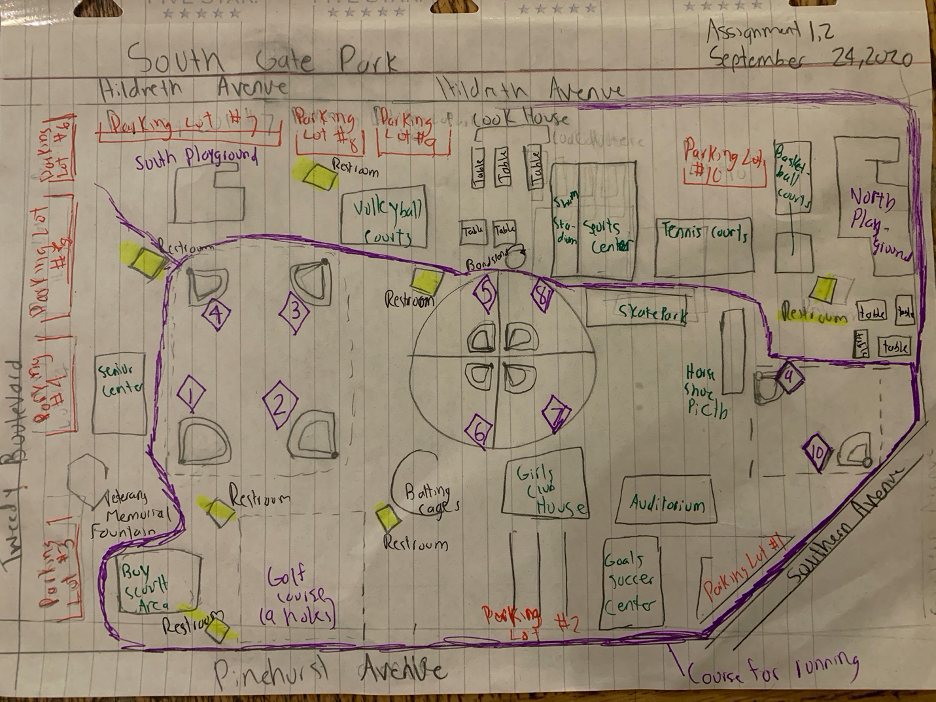 Assignment 1.2
September 24, 2020
South Gate Park
Hildreth Avenue
Hildreth Avenue
Parking Lot #7
Parking
Lot #8
Parking
Lot #9
Cook House
Parking
Lot #6
South Playground
Restroom
Volleyball
Courts
Table
Table
Table
Table
Table
Bandstand
Swim
Sta-
dium
Sports
Center
Parking Lot
#10
Tennis courts
Basket-
ball
courts
North
Play-
ground
Restroom
Restroom
Restroom
Table
Table
Table
Table
Skatepark
Parking Lot
Parking
Lot #4
Tweedy Boulevard
Senior
Center
4
3
5
8
1
2
6
7
9
10
Horse
Shoe
Pi Clb
Veterans
Memorial
Fountain
Restroom
Batting
cages
Restroom
Girls
Club
House
Auditorium
Southern Avenue
Parking
Lot #3
Boy
Scout
Area
Restroom
Golf
course
(9 holes)
Parking
Lot #2
Goals
Soccer
Center
Parking Lot #1
Pinehurst Avenue
Course for running